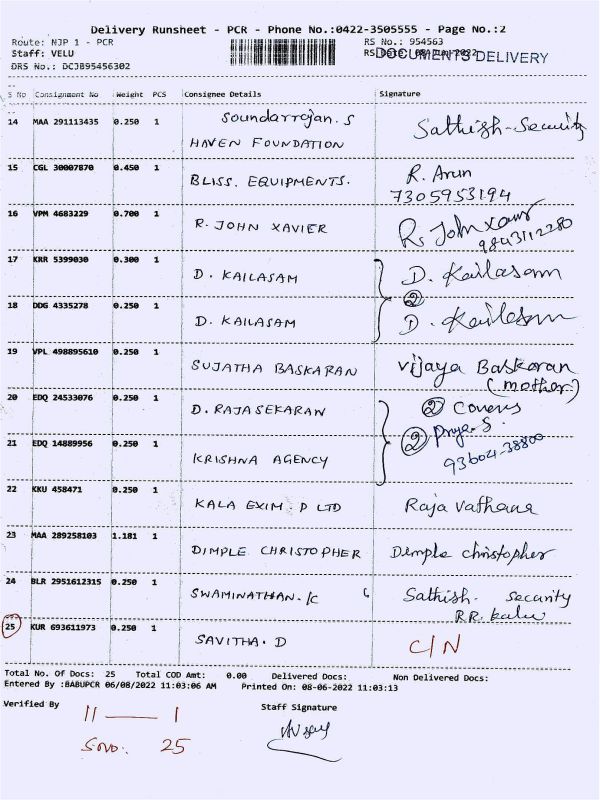 Delivery Runsheet - PCR - Phone No.:0422-3505555 - Page No.:2
Route: NJP 1 - PCR
Staff: VELU
DRS No.: DCJB95456302
RS No.: 954563
DOCUMENTS DELIVERY
S No Consignment No Weight PCS Consignee Details Signature
14 MAA 291113435 0.250 1 Soundarrajan. S Sathish-Security
HAVEN FOUNDATION
15 CGL 30007870 0.450 1 BLISS. EQUIPMENTS. R. Arun
7305953194
16 VPM 4683229 0.700 1 R. JOHN XAVIER R. John Xavier
9843112280
17 KRR 5399030 0.300 1 D. KAILASAM D. Kailasam
2
18 DDG 4335278 0.250 1 D. KAILASAM D. Kailasam
19 VPL 498895610 0.250 1 SUJATHA BASKARAN Vijaya Baskaran
(mother)
20 EDQ 24533076 0.250 1 D. RAJASEKARAN 2 Covers
2 Priya. S.
21 EDQ 14889956 0.250 1 KRISHNA AGENCY 93604-38800
22 KKU 458471 0.250 1 KALA EXIM. P LTD Raja Vathana
23 MAA 289258103 1.181 1 DIMPLE CHRISTOPHER Dimple christopher
24 BLR 2951612315 0.250 1 SWAMINATHAN. K Sathish. security
25 KUR 693611973 0.250 1 SAVITHA. D C/N
Total No. Of Docs: 25 Total COD Amt: 0.00 Delivered Docs: Non Delivered Docs:
Entered By :BABUPCR 06/08/2022 11:03:06 AM Printed On: 08-06-2022 11:03:13
Verified By Staff Signature
11 — 1
25